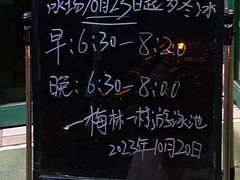 泳场10月23日起为冬泳
早:6:30-8:20
晚:6:30-8:00
梅林一村游泳池
2023年10月20日